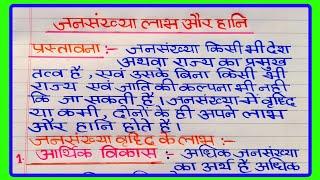 जनसंख्या लाभ और हानि
प्रस्तावना :- जनसंख्या किसी भी देश
अथवा राज्य का प्रमुख
तत्व हैं, एवं उसके बिना किसी भी
राज्य एवं जाति की कल्पना भी नहीं
कि जा सकती हैं। जनसंख्या में वृद्धि
या कमी, दोनों के ही अपने लाभ
और हानि होते हैं।
जनसंख्या वृद्धि के लाभ :-
1. आर्थिक विकास :- अधिक जनसंख्या
का अर्थ हैं अधिक